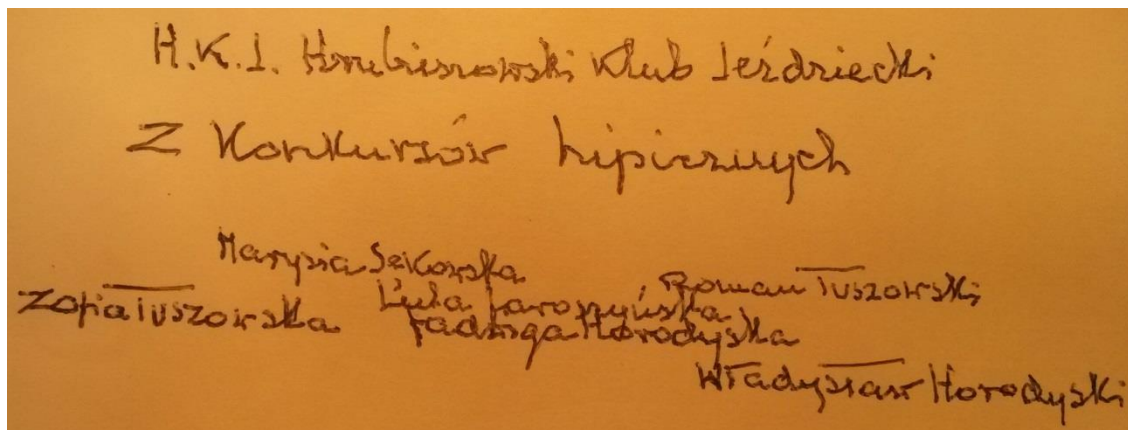 H.K.J. Hrubieszowski Klub Jeździecki
Z Konkursów hipicznych
Marysia Sękowska
Roman Tuszowski
Zofia Tuszowska
Lula Jaroszyńska
Jadwiga Horodyska
Władysław Horodyski